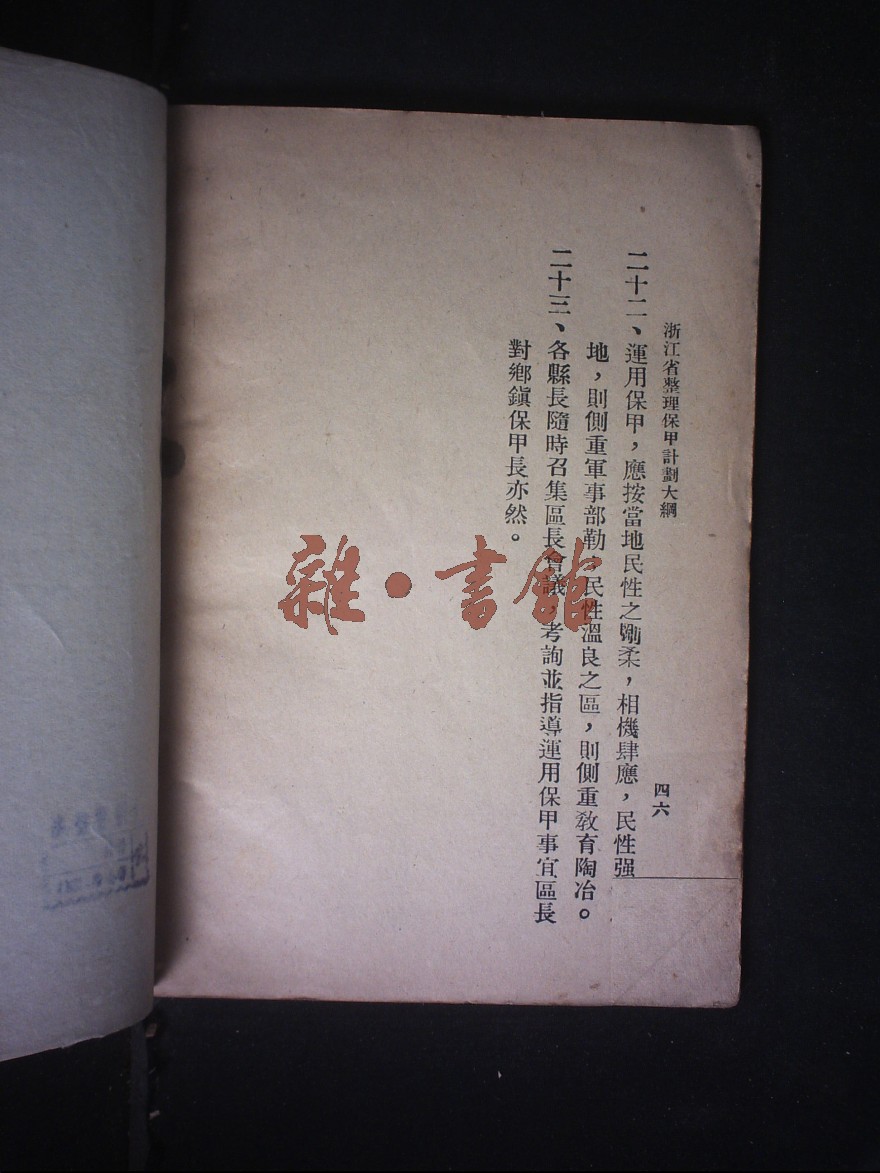 浙江省整理保甲計劃大綱
四六
二十二、運用保甲，應按當地民性之剛柔，相機肆應，民性强
地，則側重軍事部勒，民性溫良之區，則側重敎育陶冶。
二十三、各縣長隨時召集區長會議，考詢並指導運用保甲事宜區長
對鄕鎭保甲長亦然。
雜·書館